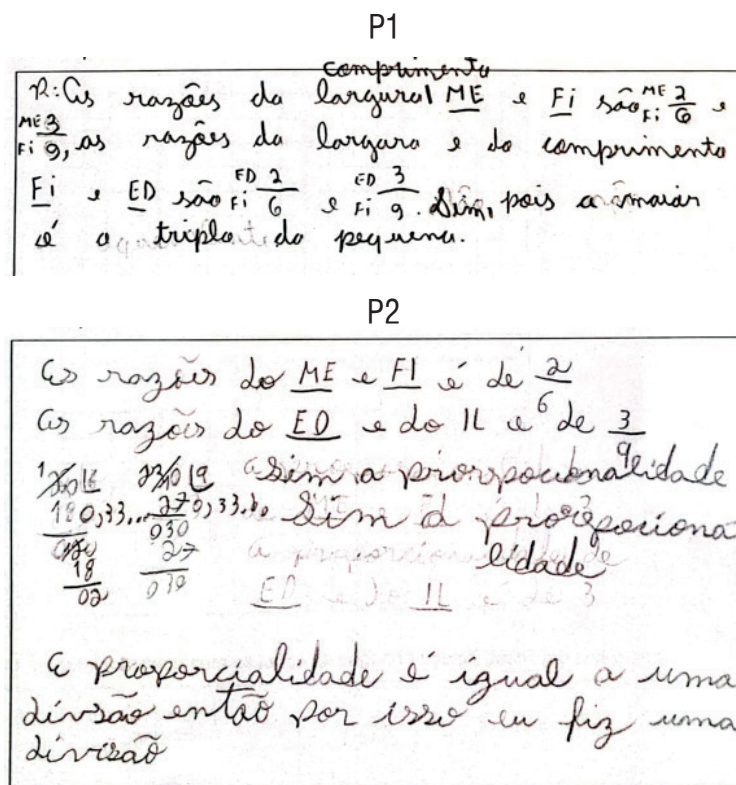 P1
comprimento
R: As razões da largura ME e Fi são ME/Fi 2/6 e
ME/Fi 3/9, as razões da largura e do comprimento
Fi e ED são ED/Fi 2/6 e ED/Fi 3/9. Sim, pois a maior
é o triplo da pequena.
P2
As razões do ME e FI é de 2/6
As razões do ED e do IL é de 3/9
Sim a prorpocionalidade
0,33... 0,33... Sim a proporciona
lidade
A proporcialidade é igual a uma
divsão então por isso eu fiz uma
divisão